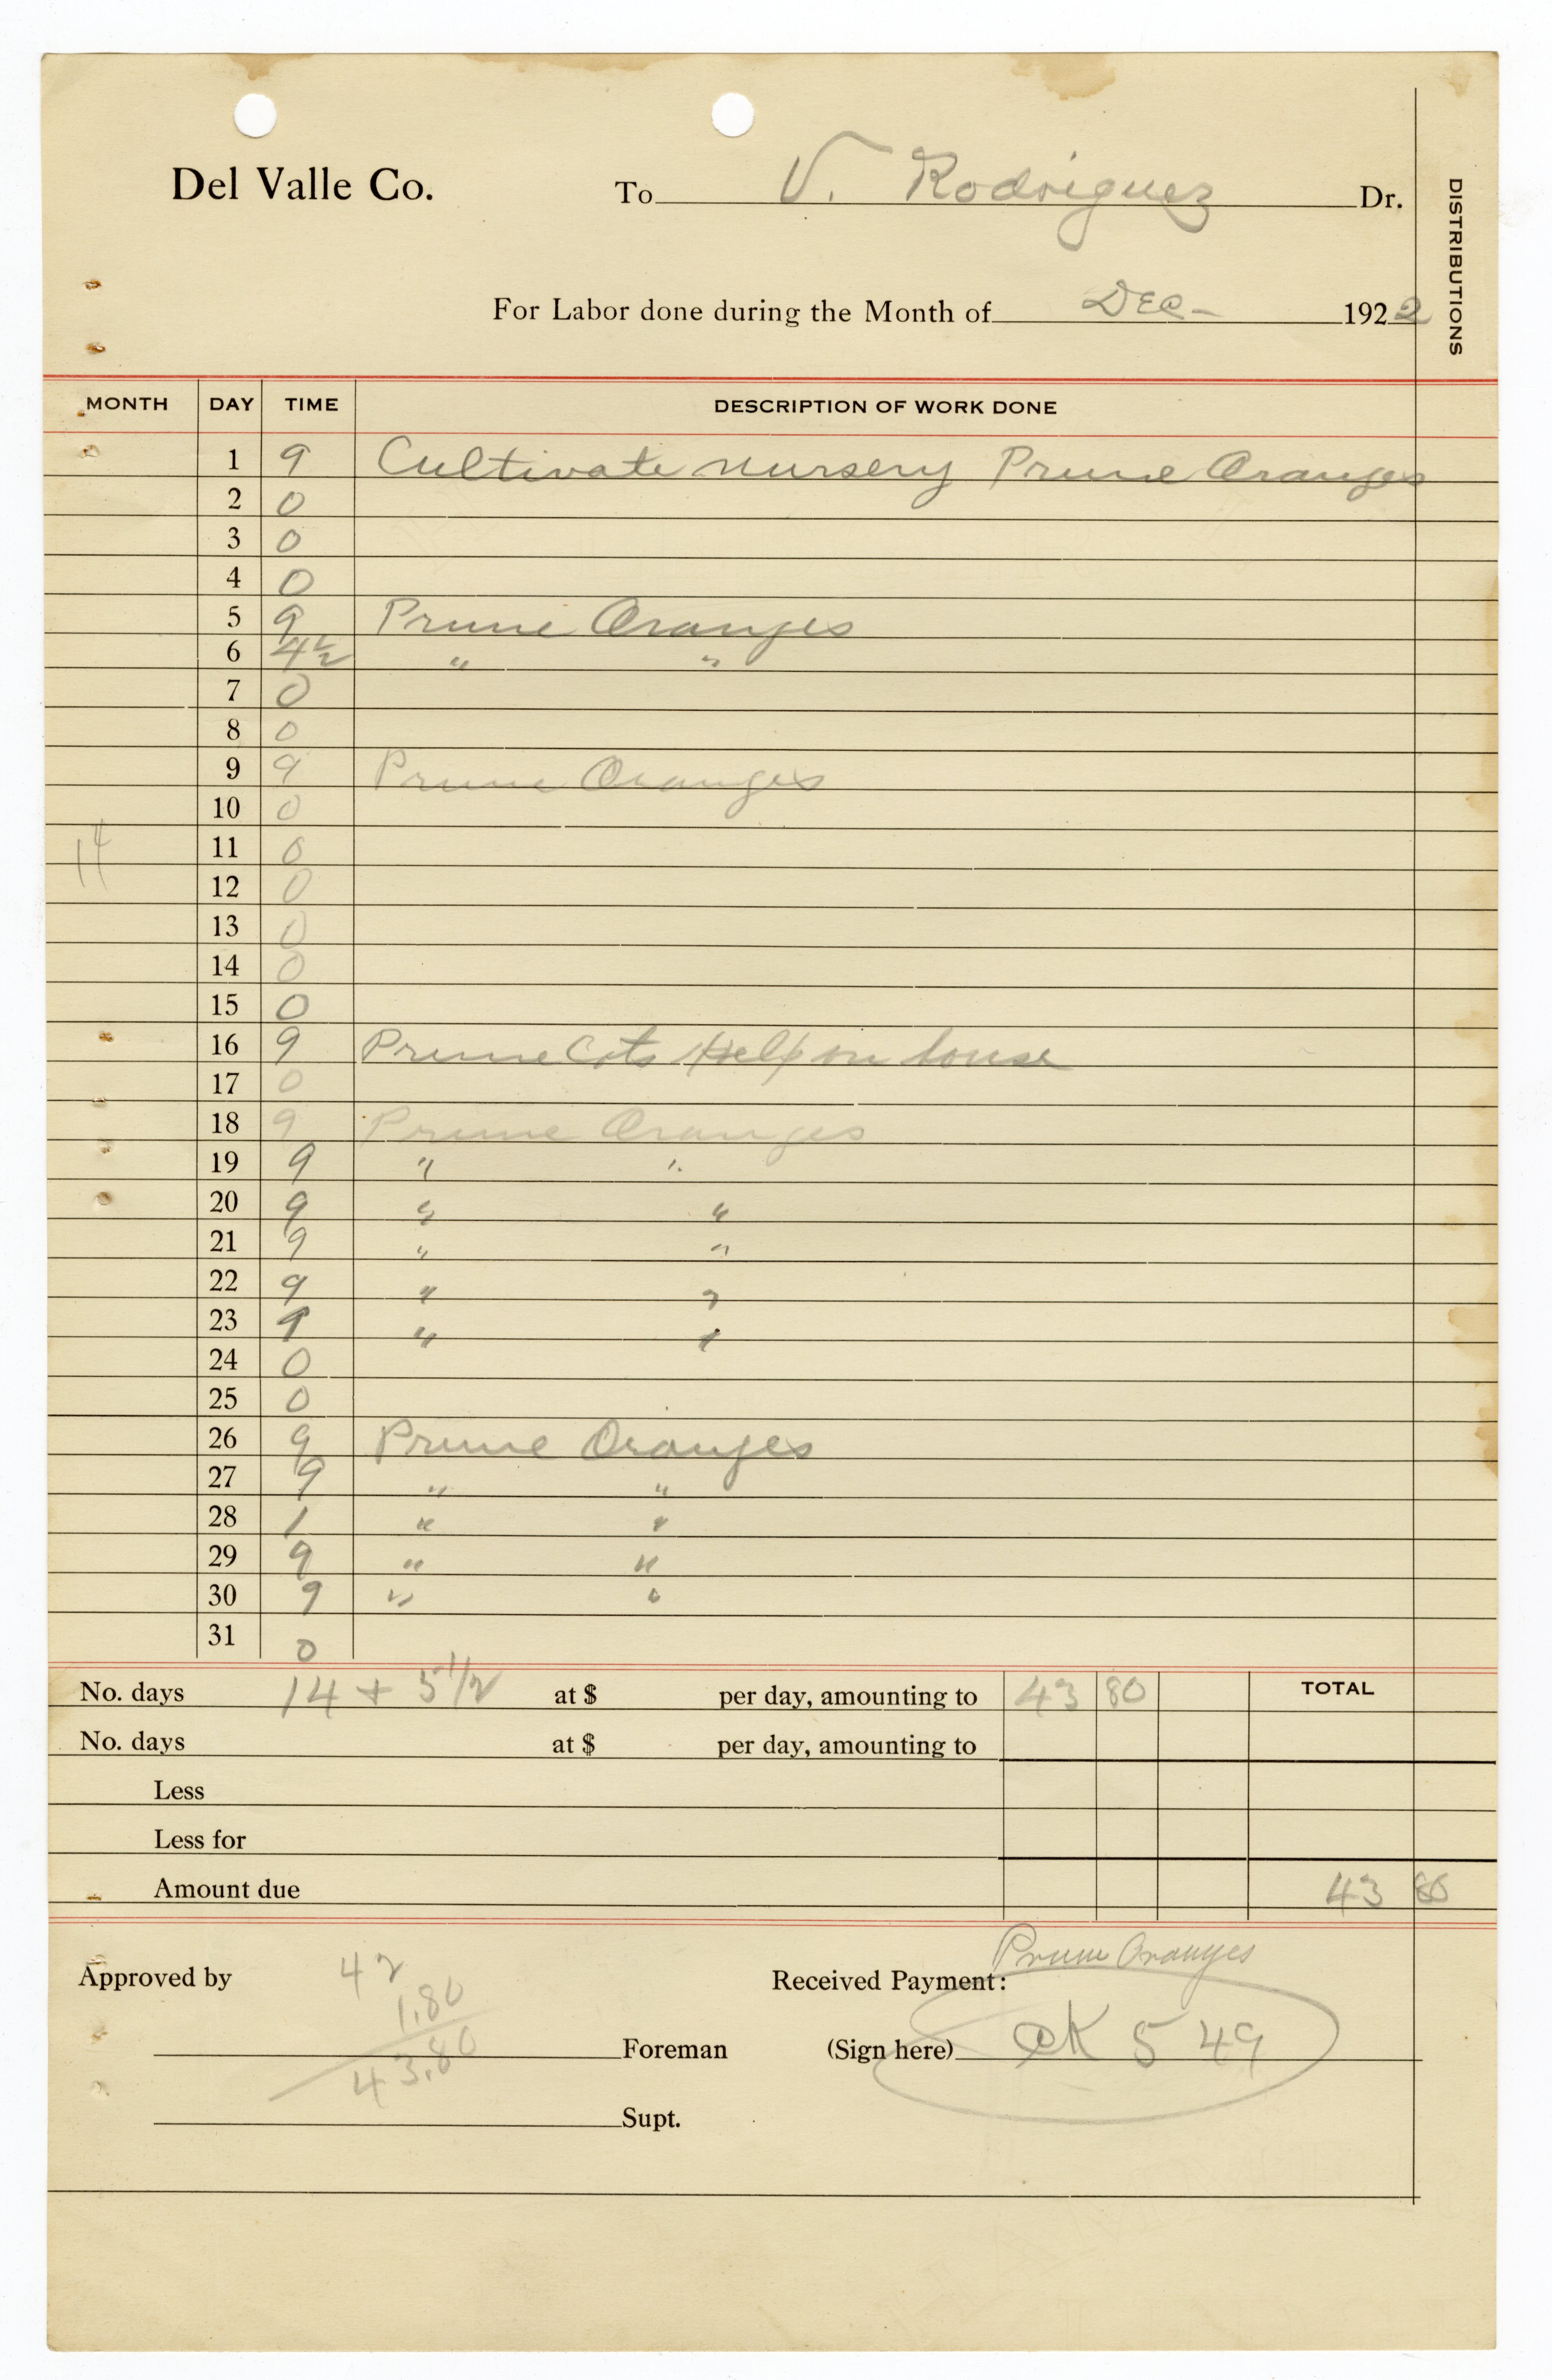 Del Valle Co. To V. Rodriguez Dr.
DISTRIBUTIONS
For Labor done during the Month of Dec- 1922
MONTH DAY TIME DESCRIPTION OF WORK DONE
1 9 Cultivate nursery Prune Oranges
2 0
3 0
4 0
5 9 Prune Oranges
6 4½ " "
7 0
8 0
9 9 Prune Oranges
10 0
14
11 0
12 0
13 0
14 0
15 0
16 9 Prune Cots Help on house
17 0
18 9 Prune Oranges
19 9 " "
20 9 " "
21 9 " "
22 9 " "
23 9 " "
24 0
25 0
26 9 Prune Oranges
27 9 " "
28 1 " "
29 9 " "
30 9 " "
31 0
No. days 14 + 5 1/2 at $ per day, amounting to 43 80 TOTAL
No. days at $ per day, amounting to
Less
Less for
Amount due 43 80
Prune Oranges
Approved by 42 Received Payment:
1.80
Foreman (Sign here) CK 549
43.80
Supt.